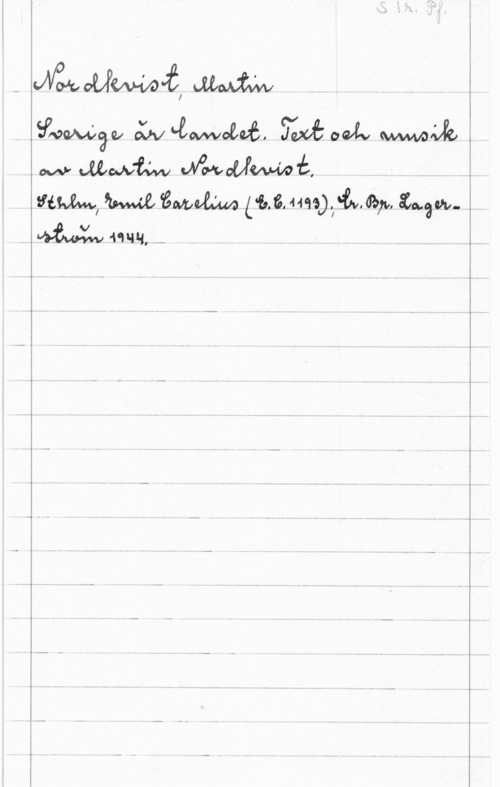 S 1r. Pf.
Nordkvist, Martin
Sverige är landet. Text och musik
av Martin Nordkvist.
Sthlm, Emil Carelius (E.C. 1193); tr. Br. Lager-
ström 1944.